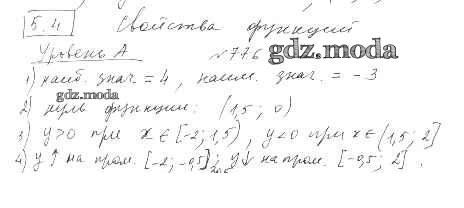 5.4 Свойства функций
Уровень А №776 gdz.moda
1) наиб. знач. = 4, наим. знач. = -3
gdz.moda
2) нуль функции: (1,5; 0)
3) y>0 при x ∈ [-2; 1,5), y<0 при x ∈ (1,5; 2]
4) y ↑ на пром. [-2; -0,5]; y↓ на пром. [-0,5; 2].